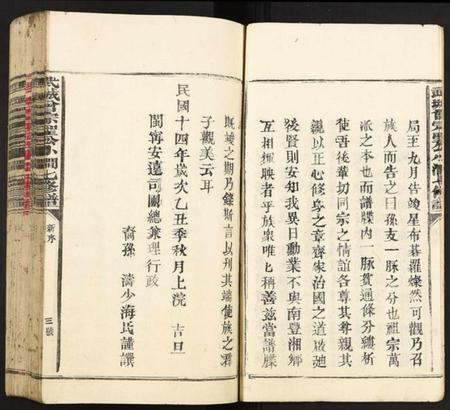 局至九月告竣星布碁羅燦然可觀乃召
族人而告之曰孫支一脉之分也祖宗萬
派之本也而譜牒内一脉貫通條分縷析
使吾後華切同宗之情誼各尊其尊親其
親以正心修身之章齊家治國之道啟迪
後賢則安知我異日勳業不與南豐湘鄉
互相輝映者乎族衆唯匕稱善茲當譜牒
既竣之期乃錄斯言以刋其端使族之君
子觀美云耳
民國十四年歲次乙丑季秋月上浣 吉旦
閩甯安遠司關總兼理行政
裔孫 濤少海氏謹譔
武城曾氏
七修譜
新序
三號